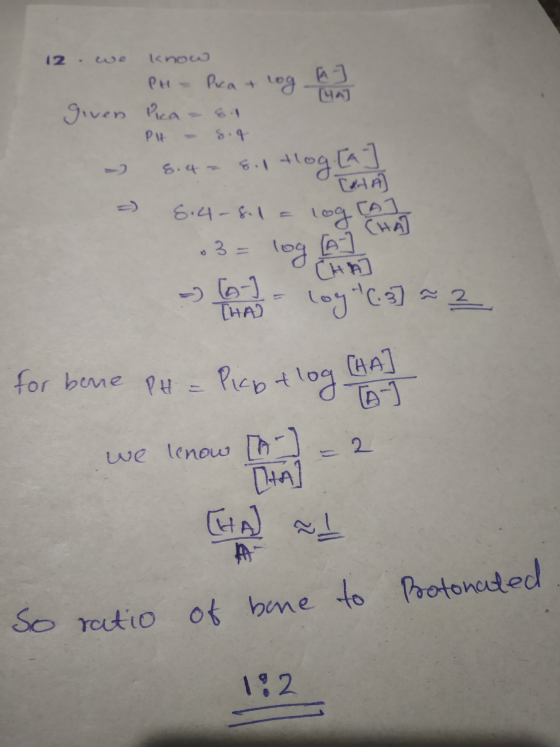 12. we know
PH = PKa + log [A-]/[HA]
Given PKa = 8.1
PH = 8.4
=> 8.4 = 8.1 + log [A-]/[HA]
=> 8.4 - 8.1 = log [A-]/[HA]
.3 = log [A-]/[HA]
=> [A-]/[HA] = log-1(.3] ≈ 2
for bane PH = PKb + log [HA]/[A-]
we know [A-]/[HA] = 2
[HA]/A- ≈ 1
So ratio of bane to Protonated
1:2